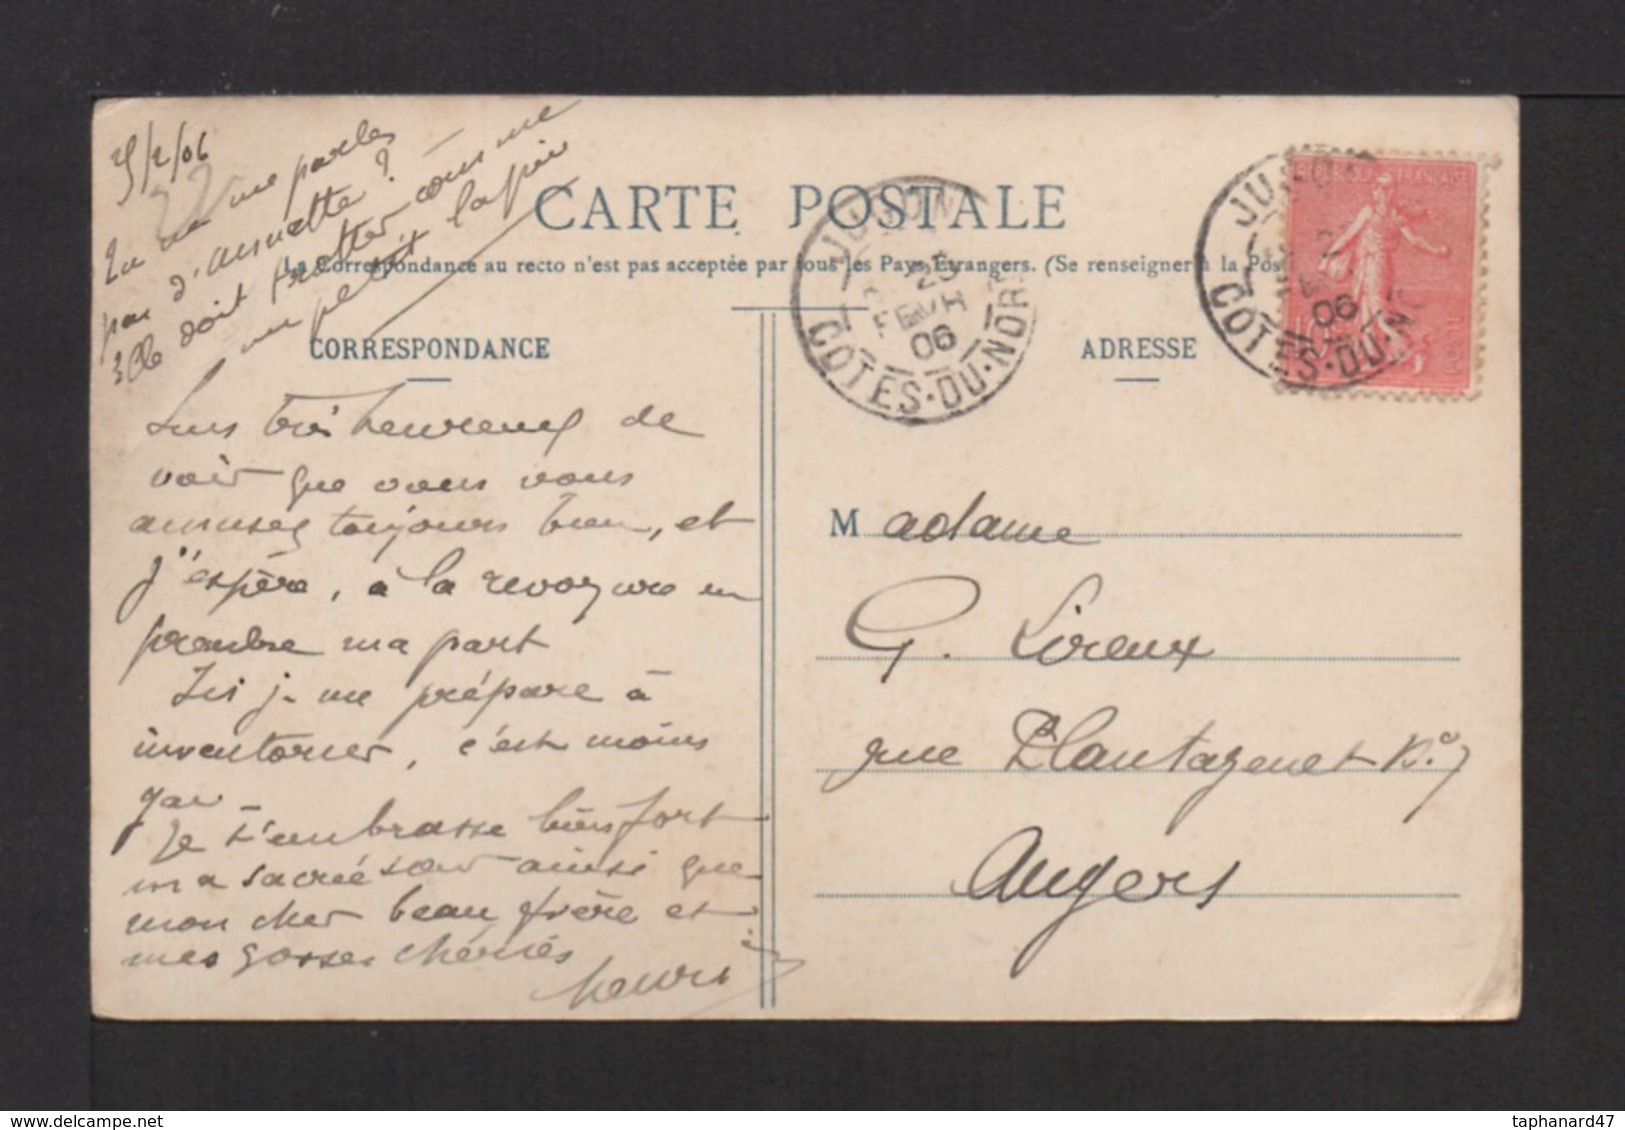 /2/06
Tu ne me parles
pas d'Annette ?
Elle doit trotter comme
un petit lapin
CARTE POSTALE
La Correspondance au recto n'est pas acceptée par tous les Pays Étrangers. (Se renseigner à la Pos
CORRESPONDANCE
ADRESSE
JUGON
25
FEVR
06
COTES-DU-NORD
JUGON
06
COTES-DU-NORD
REPUBLIQUE FRANÇAISE
Suis très heureux de
voir que vous vous
amusez toujours bien, et
j'espère, à la revoyure en
prendre ma part
Ici je me prépare à
inventorier, c'est moins
gai
Je t'embrasse bien fort
ma sacrée sœur ainsi que
mon cher beau frère et
mes gosses chéries
Henri
Madame
G. Lireux
rue Plantagenet N° 7
Angers
taphanard47